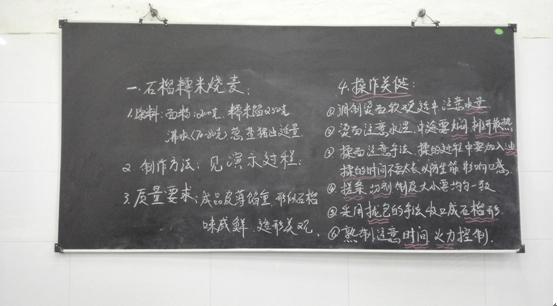 一.石榴糯米烧麦:
1.原料:面粉:200克, 糯米馅250克
沸水(70-80克) 葱姜猪油适量
2. 制作方法:见演示过程:
3.质量要求:成品皮薄馅重 形似石榴
味咸鲜 造形美观.
4.操作关键:
①调制烫面软硬适中注意水量
②烫面注意水温 中途要 时间 排开散热
③揉面注意手法 揉的过程中要 加入油
揉的时间不宜太长以防生筋 影响口感.
④搓条 均匀 制皮大小要均匀一致
⑤采用拢包的手法 收口成石榴形.
⑥熟制注意时间 火力控制.